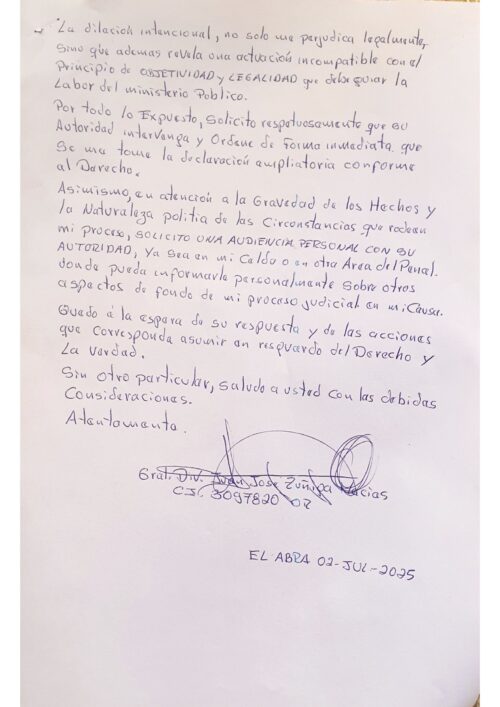 La dilación intencional, no solo me perjudica legalmente,
Sino que ademas revela una actuación incompatible con el
Principio de OBJETIVIDAD y LEGALIDAD que debe guiar la
Labor del ministerio Público.
Por todo lo Expuesto, Solicito respetuosamente que su
Autoridad intervenga y Ordene de Forma inmediata que
Se me tome la declaración ampliatoria conforme
al Derecho.
Asimismo, en atención a la Gravedad de los Hechos y
la Naturaleza politia de las Circonstancias que rodean
mi proceso, SOLICITO UNA AUDIENCIA PERSONAL CON SU
AUTORIDAD, Ya Sea en mi Celda o en otra Area del Penal.
donde pueda informarle personalmente Sobre otros
aspectos de fondo de mi proceso judicial en mi Causa.
Quedo a la espera de su respuesta y de las acciones
que corresponda asumir en resguardo del Derecho y
La Verdad.
Sin otro particular, saludo a usted con las debidas
Consideraciones.
Atentamente.
Gral. Div. Juan José Zuñiga Macias
C.I. 3097820 OR
EL ABRA 02-JUL-2025